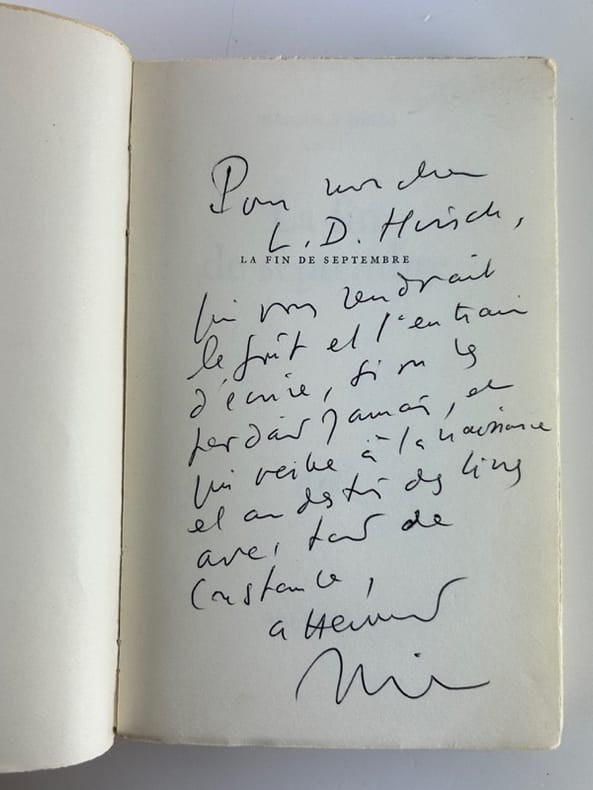 Pour mon cher
L. D. Hirsch,
LA FIN DE SEPTEMBRE
qui vous rendrait
le goût et l'entrain
d'écrire, si on les
perdait jamais, et
qui veille à la naissance
et au destin des livres
avec tant de
constance,